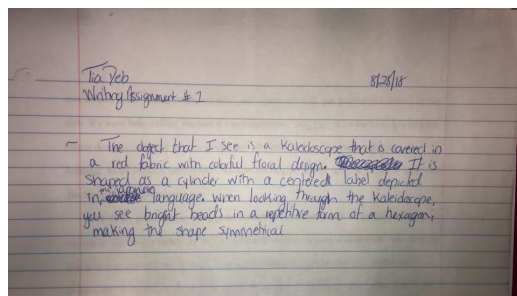 Tia Deb 8/28/18
Writing Assignment # 1
~ The object that I see is a Kaleidoscope that is covered in
a red fabric with colorful floral design. It is
shaped as a cylinder with a centered label depicted
in the Japanese language. When looking through the Kaleidoscope,
you see bright beads in a repetitive form of a hexagon,
making the shape symmetrical